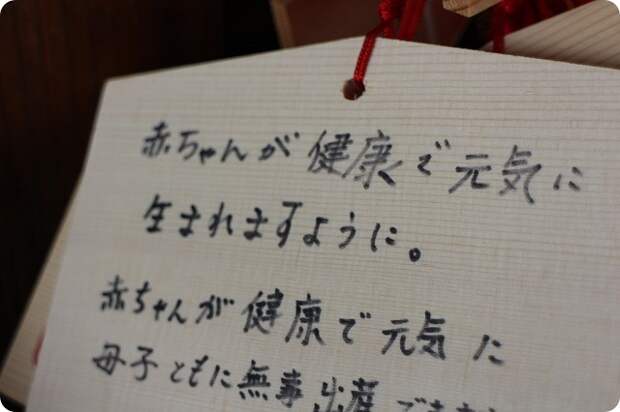 赤ちゃんが健康で元気に
生まれますように。
赤ちゃんが健康で元気に
母子ともに無事出産でき